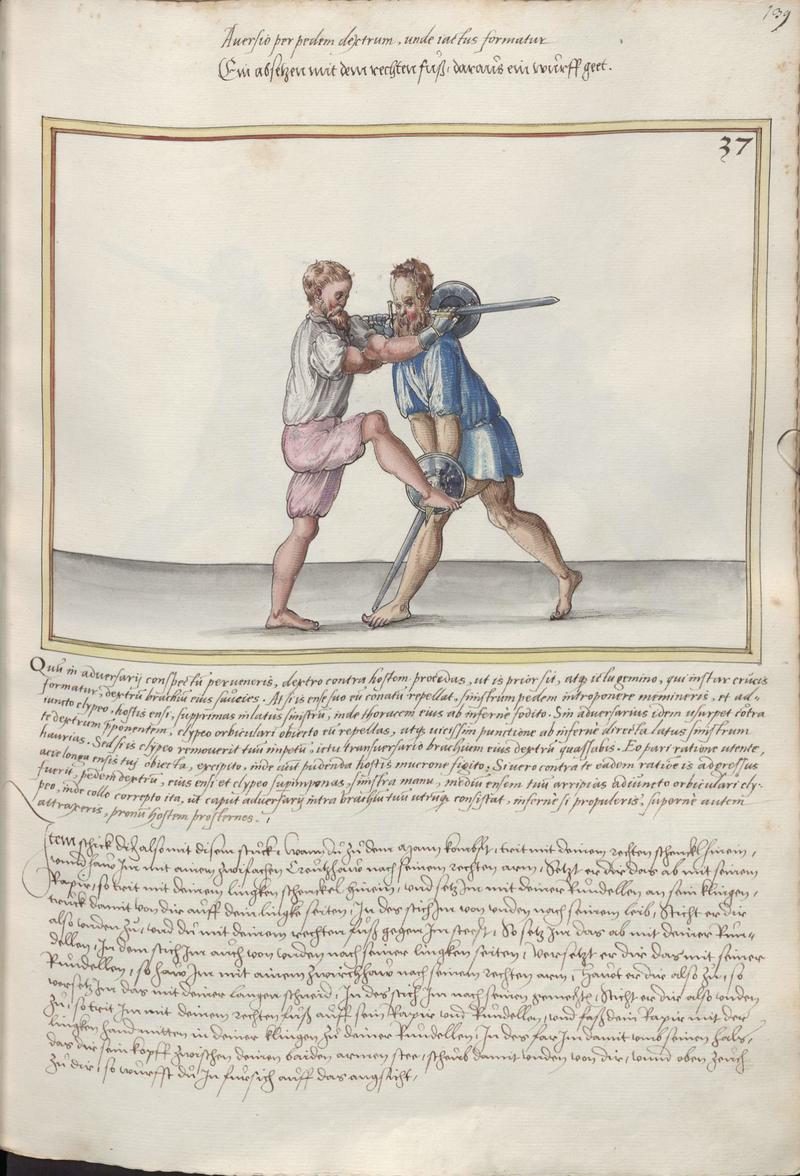 139
Aversio per pedem dextrum, unde iactus formatur
Ein absetzen mit dem rechten fuß, daraus ein wurff geet.
37
Quũ in adversarij conspectũ perveneris, dextro contra hostem procedas, ut is prior sit, atq; ictu gemino, qui instar crucis
formatur, dextrũ brachiũ eius saucies. At si is ense suo eũ conatũ repellat, sinistrum pedem introponere memineris, et ad-
iuncto clypeo, hostis ensi, supprimas in latus sinistrũ, inde thoracem eius ab inferne fodito. Sin adversarius idem usurpet cõtra
te dextrum pponentem, clypeo orbiculari obiecto eũ repellas, atq; vicissim punctione ab inferne directa latus sinistrum
haurias. Sed si is clypeo removerit tuũ impetũ, ictu transversario brachium eius dextrũ quassabis. Eo pari ratione utente,
acie longa ensis tuj obiecta, excipito, inde aut pudenda hostis mucrone figito. Si vero contra te eadem ratiõe is adgressus
fuerit, pedem dextrũ, eius ensi et clypeo supimponas, sinistra manu, mediũ ensem tuũ arripias adiuncto orbiculari cly-
peo, inde collo correpto ita, ut caput adversarij intra brachiũ tuũ utrũq; consistat, inferne si propuleris, superne autem
attraxeris, pronũ hostem prosternes.
Item schick dich also mit disem stuck, Wann du zu dem Mann kombst, trit mit deinem rechten schenckl hinein,
unnd haw Im mit ainem zwifachen Creutzhaw nach seinem rechten arm, Setzt er dir das ab mit seinem
Rapir, so trit mit deinem lingken schenckel hinein, und setz Im mit deiner Rundellen an sein klingen,
truck damit von dir auff dein lingke seiten, In des stich Im von unden nach seinem leib, Sticht er dir
also unden zu, und du mit deinem rechten fuß gegen Im steest, So setz Im das ab mit deiner Run-
dellen, In dem stich Im auch von unden nach seiner lingken seiten, Versetzt er dir das mit seiner
Rundellen, so haw Im mit ainem zwirchhaw nach seinem rechten arm, Hawt er dir also zu, so
versetz Im das mit deiner langen schneid, In des stich Im nach seinem gemecht, Sticht er dir also unden
zu, so trit Im mit deinem rechten fuß auff sein Rapir und Rundellen, und faß dein Rapir mit der
lingken hand mitten in deiner klingen zu deiner Rundellen, In des far Im damit umb seinen hals,
das dir sein kopff zwischen deinen baiden armen stee, scheub damit unden von dir, unnd oben zeuch
zu dir, so wurffst du In fur sich auff das angsicht,